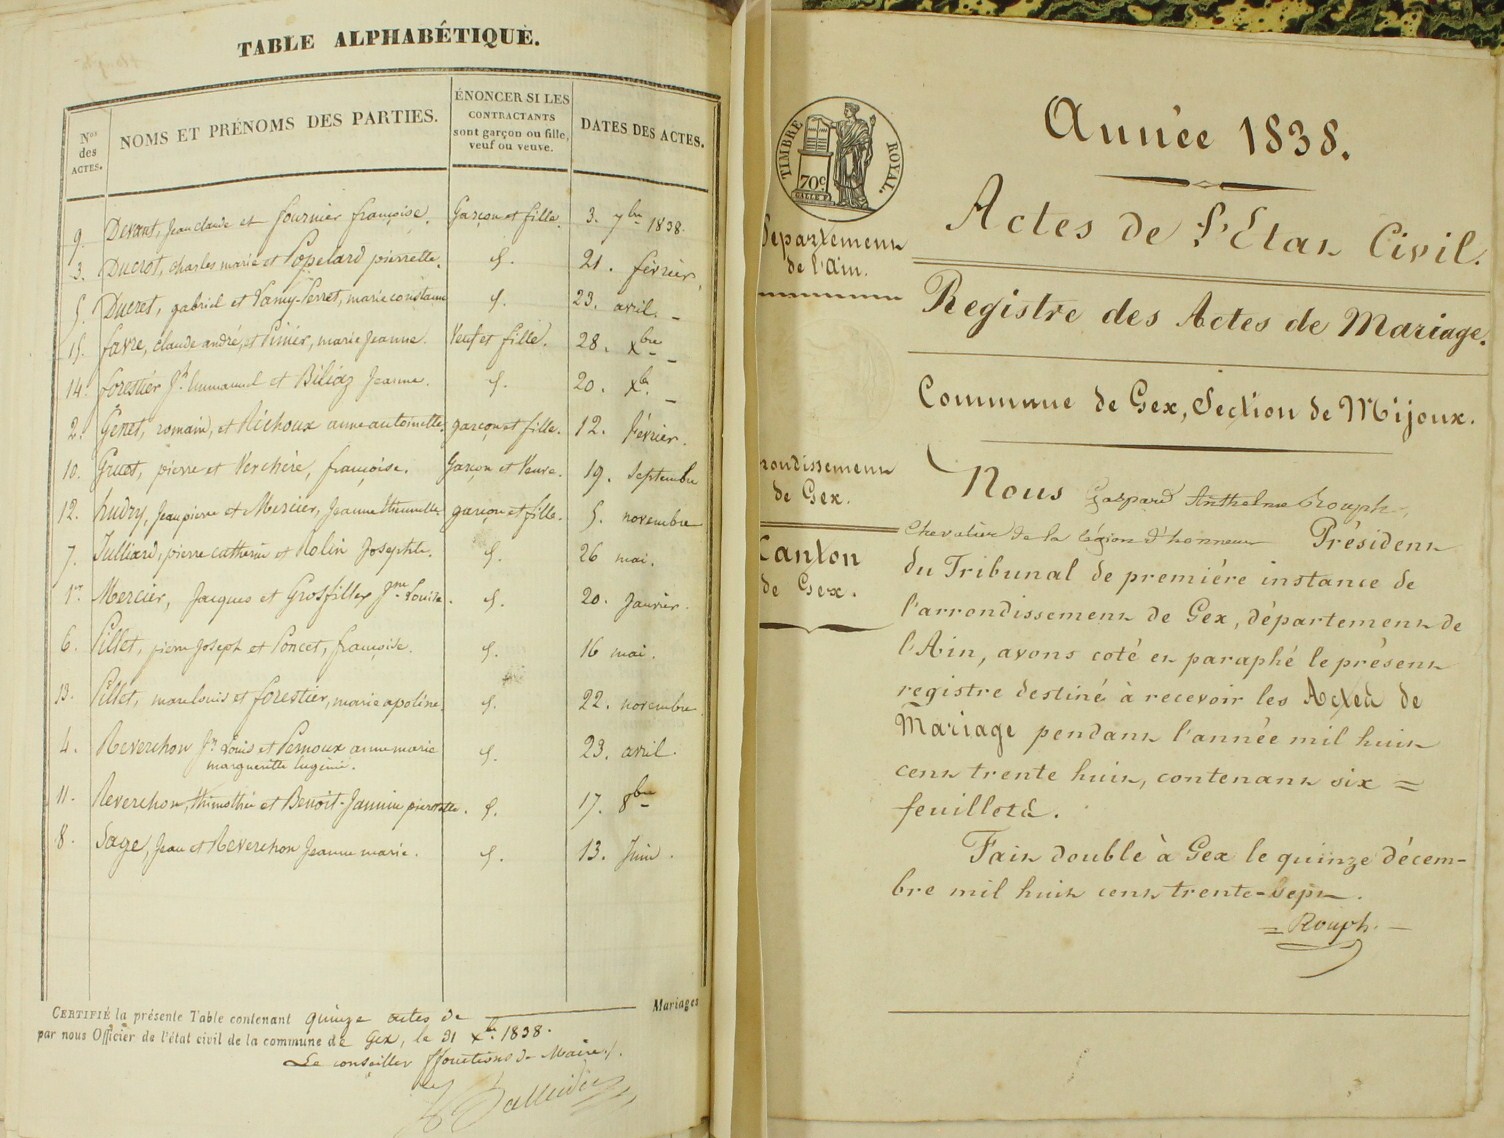 TABLE ALPHABÉTIQUE.
Nos des ACTES.
NOMS ET PRÉNOMS DES PARTIES.
ÉNONCER SI LES
CONTRACTANTS
sont garçon ou fille,
veuf ou veuve.
DATES DES ACTES.
9. Devant, Jean claude et fournier françoise. Garçon et fille. 3. 7bre 1838.
3. Ducrot, charles marie et pierrette. 21. février,
5. Ducret, gabriel et marie constance 23. avril. _
15. favre, claude andré, et marie Jeanne. Veuf et fille. 28. Xbre _
14. forestier et Jeanne. 20. Xbre. _
2. Genet, romain, et anne antoinette. garçon et fille. 12. février.
10. Gruat, pierre et Verchère, françoise. Garçon et Veuve. 19. Septembre
12. hudry, Jean pierre et Mercier, Jeanne garçon et fille. 5. novembre
7. Julliard, pierre et Rolin Josephte. 26 mai.
1er Mercier, Jacques et Grosfilley Louise. 20. Janvier.
6. Pillet, pierre Joseph et Poncet, françoise. 16 mai.
13. Pillet, et forestier, marie apoline. 22. novembre
4. Reverchon Jh Louis et Pernoux anne marie 23. avril.
margueritte Eugénie.
11. Reverchon, thimothée et Benoit-Jannin pierrette. 17. 8bre
8. Sage, Jean et Reverchon Jeanne marie. 13. Juin.
CERTIFIÉ la présente Table contenant quinze actes de Mariages
par nous Officier de l'état civil de la commune de Gex, le 31 Xbre 1838.
Le conseiller ffonctions de Maire.
TIMBRE ROYAL.
70c
Année 1838.
Actes de l'Etat Civil.
Département
de l'Ain.
Registre des Actes de Mariage.
Commune de Gex, Section de Mijoux.
rondissement
de Gex.
Canton
de Gex.
Nous Gaspard Anthelme Rouph,
chevalier de la légion d'honneur Président
du Tribunal de première instance de
l'arrondissement de Gex, département de
l'Ain, avons coté et paraphé le présent
registre destiné à recevoir les Actes de
Mariage pendant l'année mil huit
cent trente huit, contenant six =
feuillets.
Fait double à Gex le quinze décem-
bre mil huit cent trente-sept.
= Rouph. -